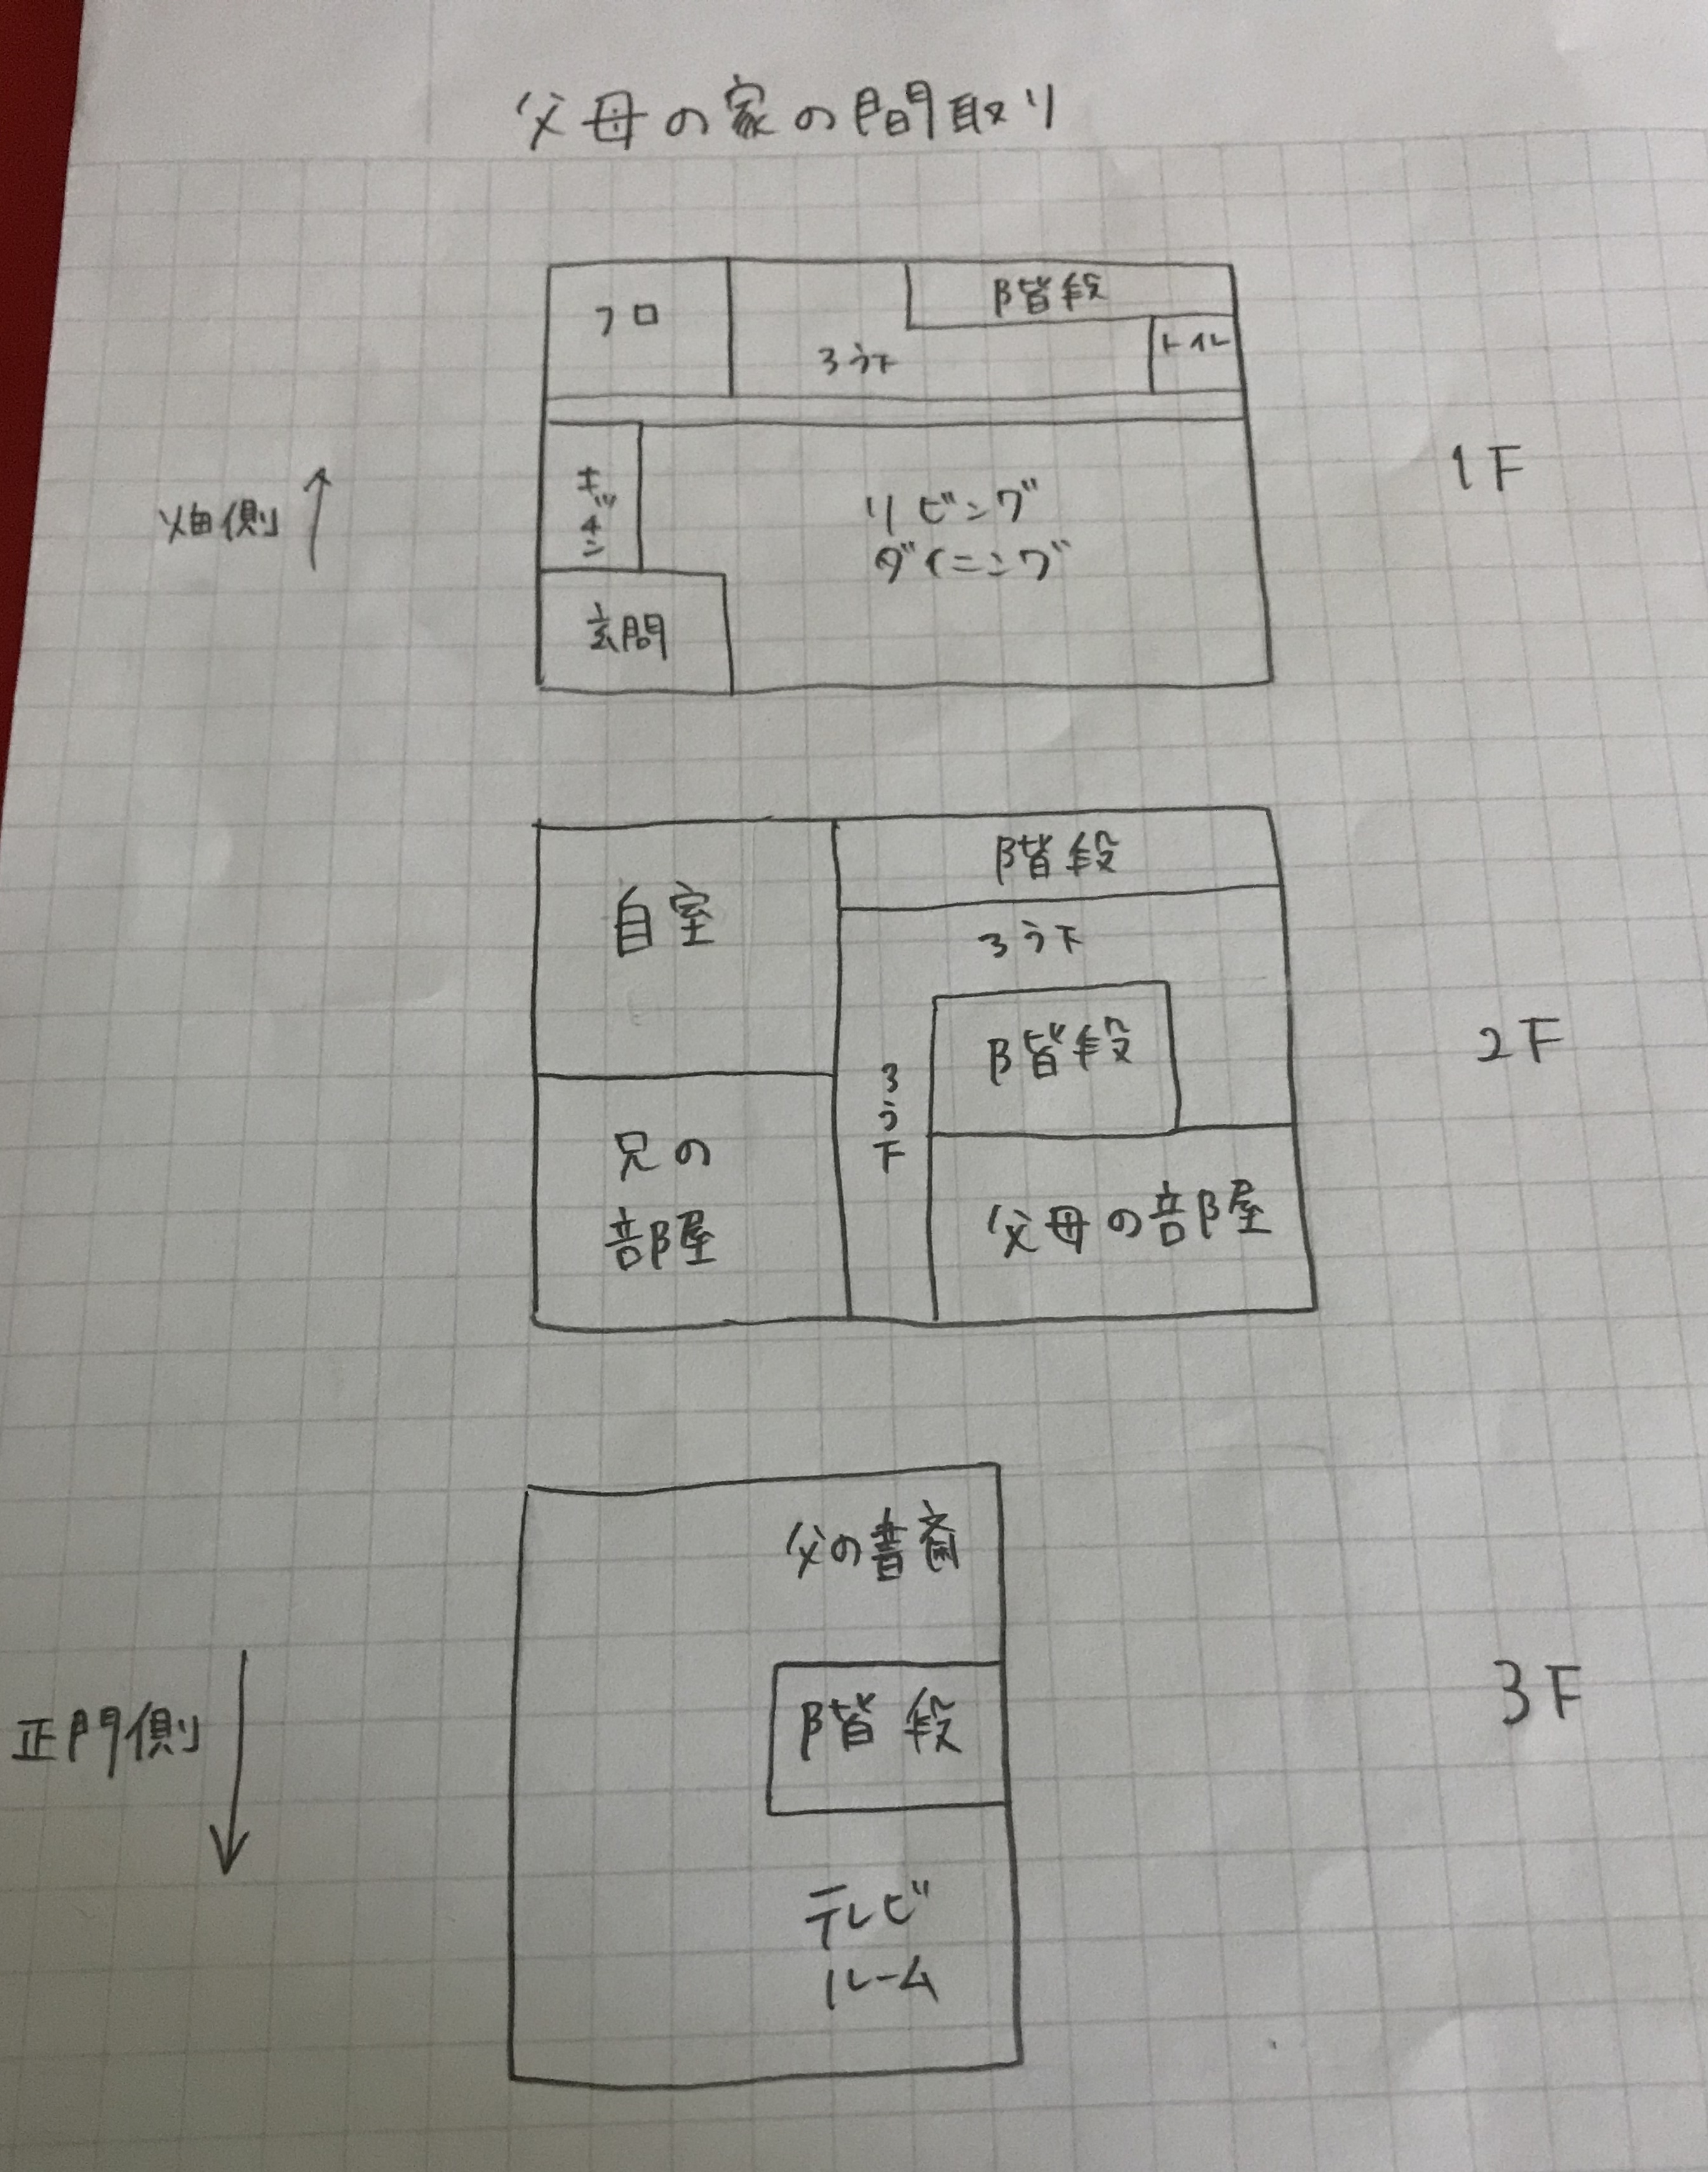 父母の家の間取り
フロ
階段
ろう下
トイレ
キッチン
リビング
ダイニング
玄関
畑側
1F
自室
階段
ろう下
階段
ろう下
兄の
部屋
父母の部屋
2F
父の書斎
階段
テレビ
ルーム
正門側
3F